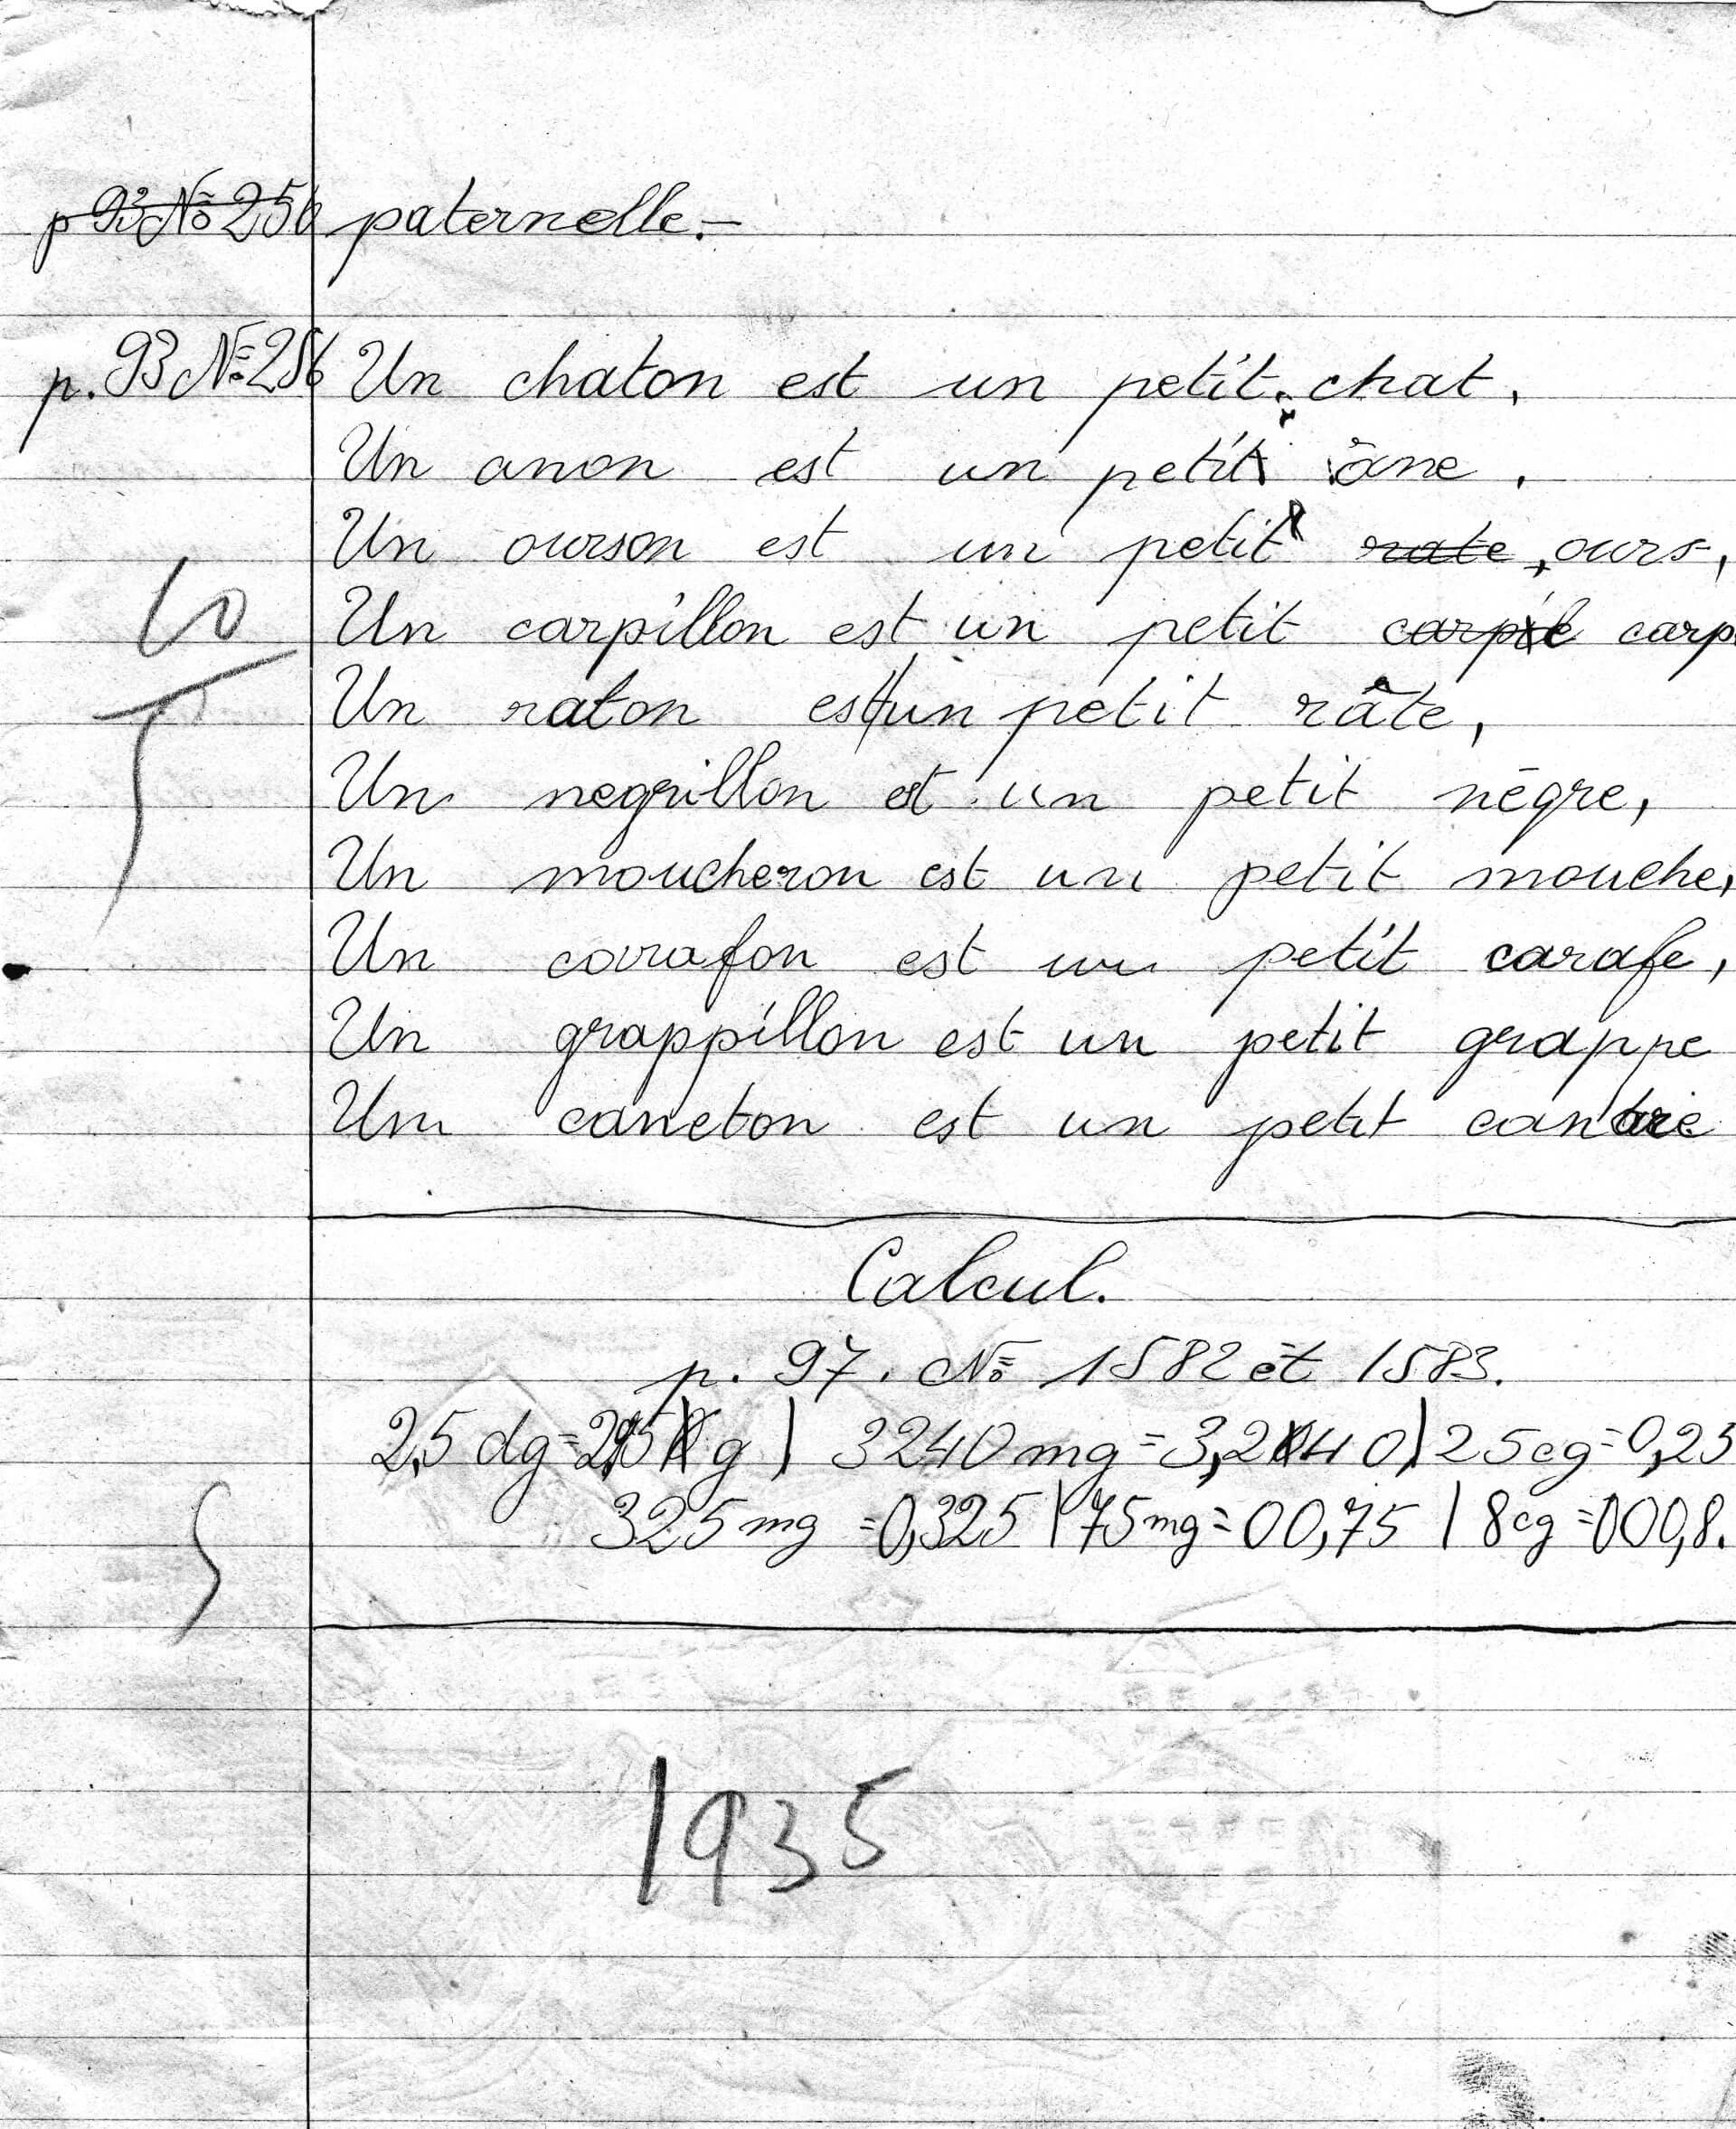 p 93 N° 256 paternelle.-
p. 93 N° 256 Un chaton est un petit chat.
Un anon est un petit âne.
Un ourson est un petit rate, ours,
10 Un carpillon est un petit carpil carp
Un raton est un petit râte,
Un negrillon est un petit nègre,
Un moucheron est un petit mouche,
Un carafon est un petit carafe,
Un grappillon est un petit grappe
Un caneton est un petit
Calcul.
p. 97. N° 1582 et 1583.
2,5 dg = g | 3240 mg = 3,240 | 25 cg = 0,25
325 mg = 0,325 | 75 mg = 00,75 | 8 cg = 000,8.
1935